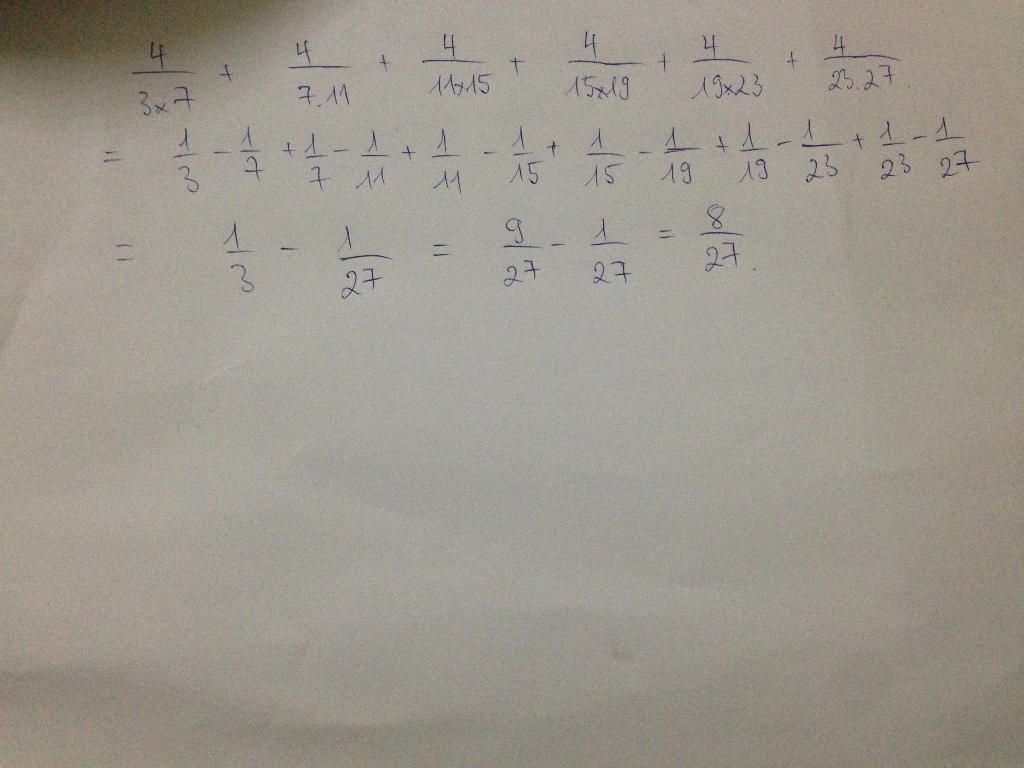 4/(3×7) + 4/(7.11) + 4/(11×15) + 4/(15×19) + 4/(19×23) + 4/(23.27).
= 1/3 - 1/7 + 1/7 - 1/11 + 1/11 - 1/15 + 1/15 - 1/19 + 1/19 - 1/23 + 1/23 - 1/27
= 1/3 - 1/27 = 9/27 - 1/27 = 8/27.